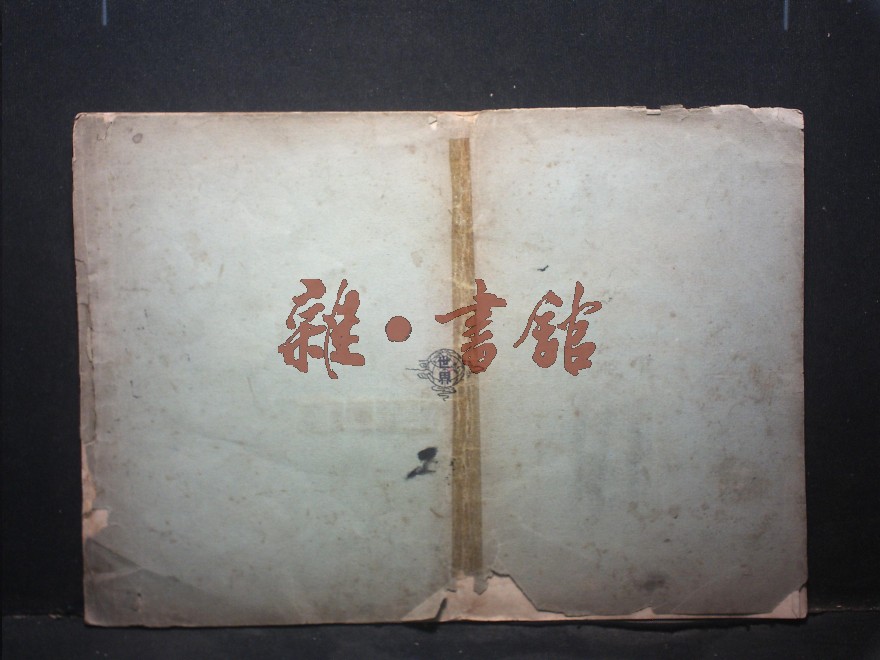 雜·書館
世界